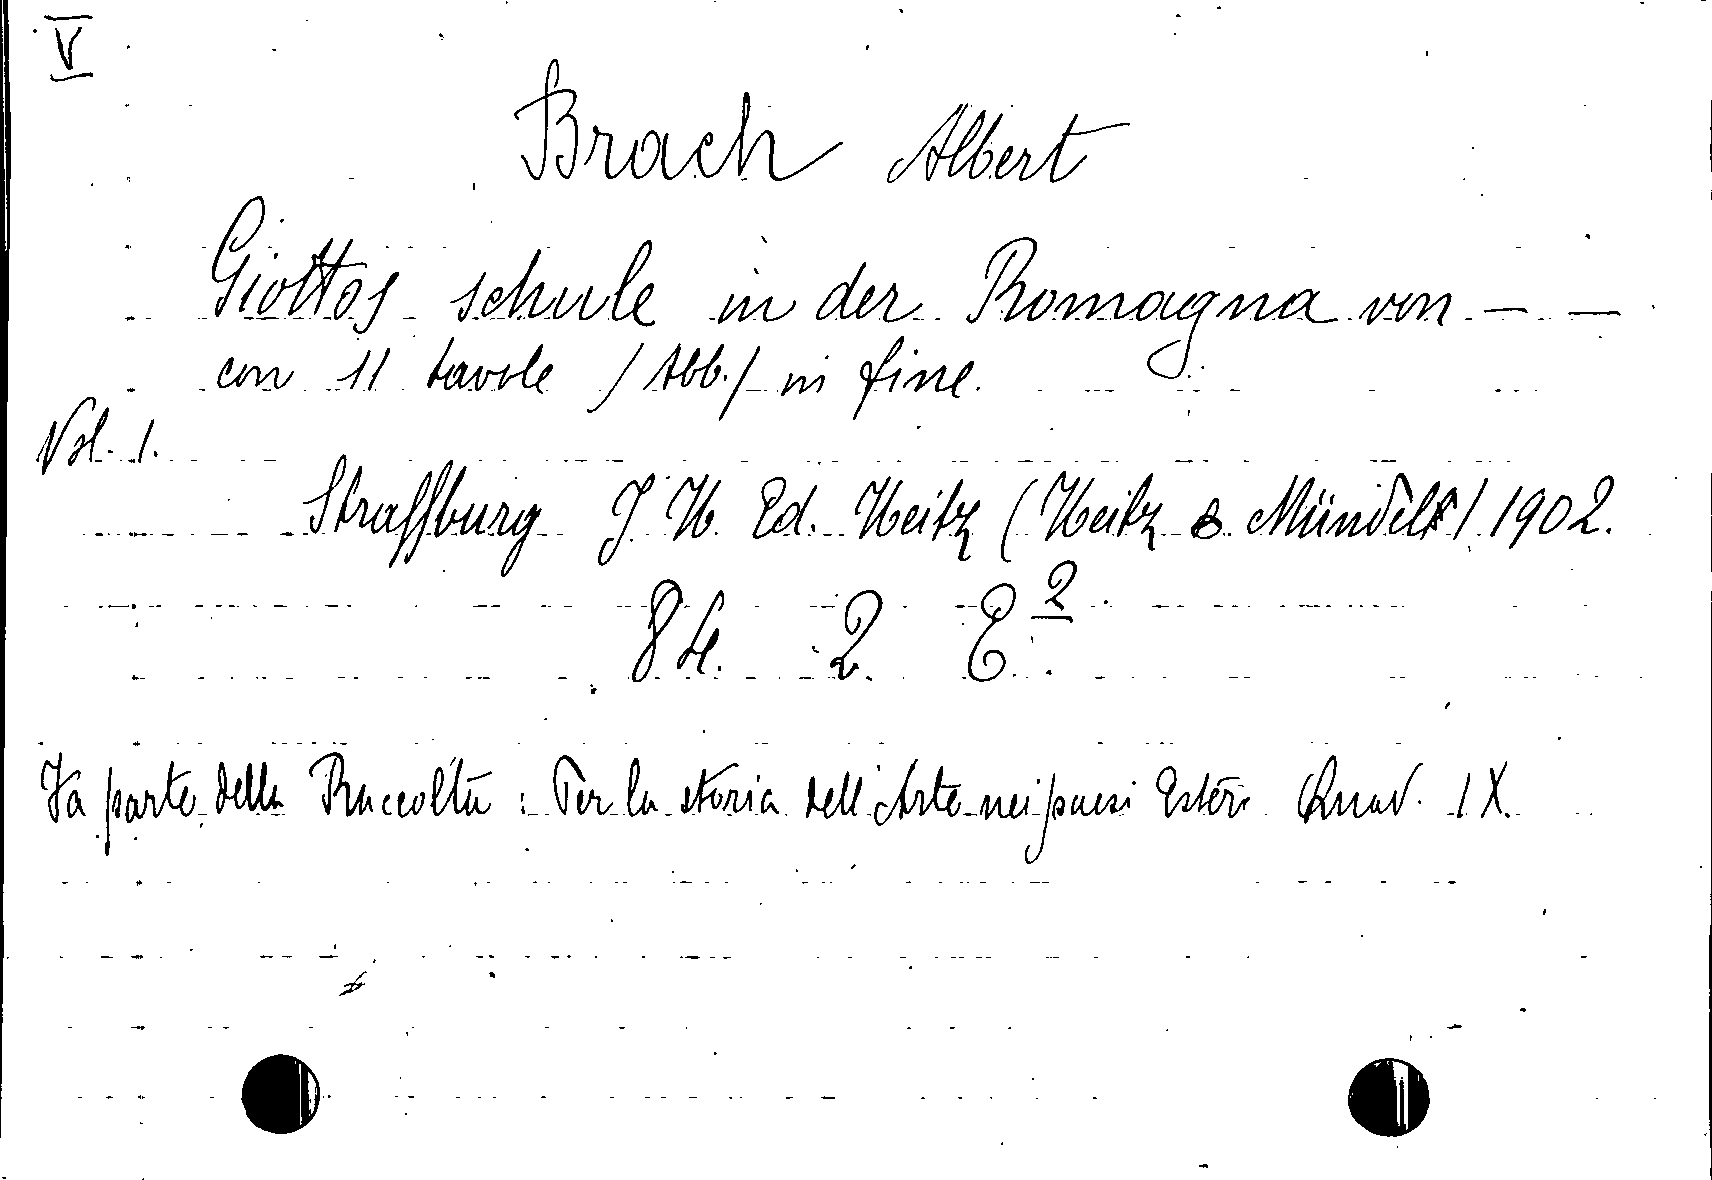 V
Brach Albert
Giottos schule in der Romagna von — —
con 11 tavole /Abb./ in fine.
Vol. 1.
Straffburg J H. Ed. Heitz (Heitz & Mündel) 1902.
84. 2. E 2.
Fa parte della Raccolta: Per la storia dell'Arte nei paesi Esteri Quad. IX.